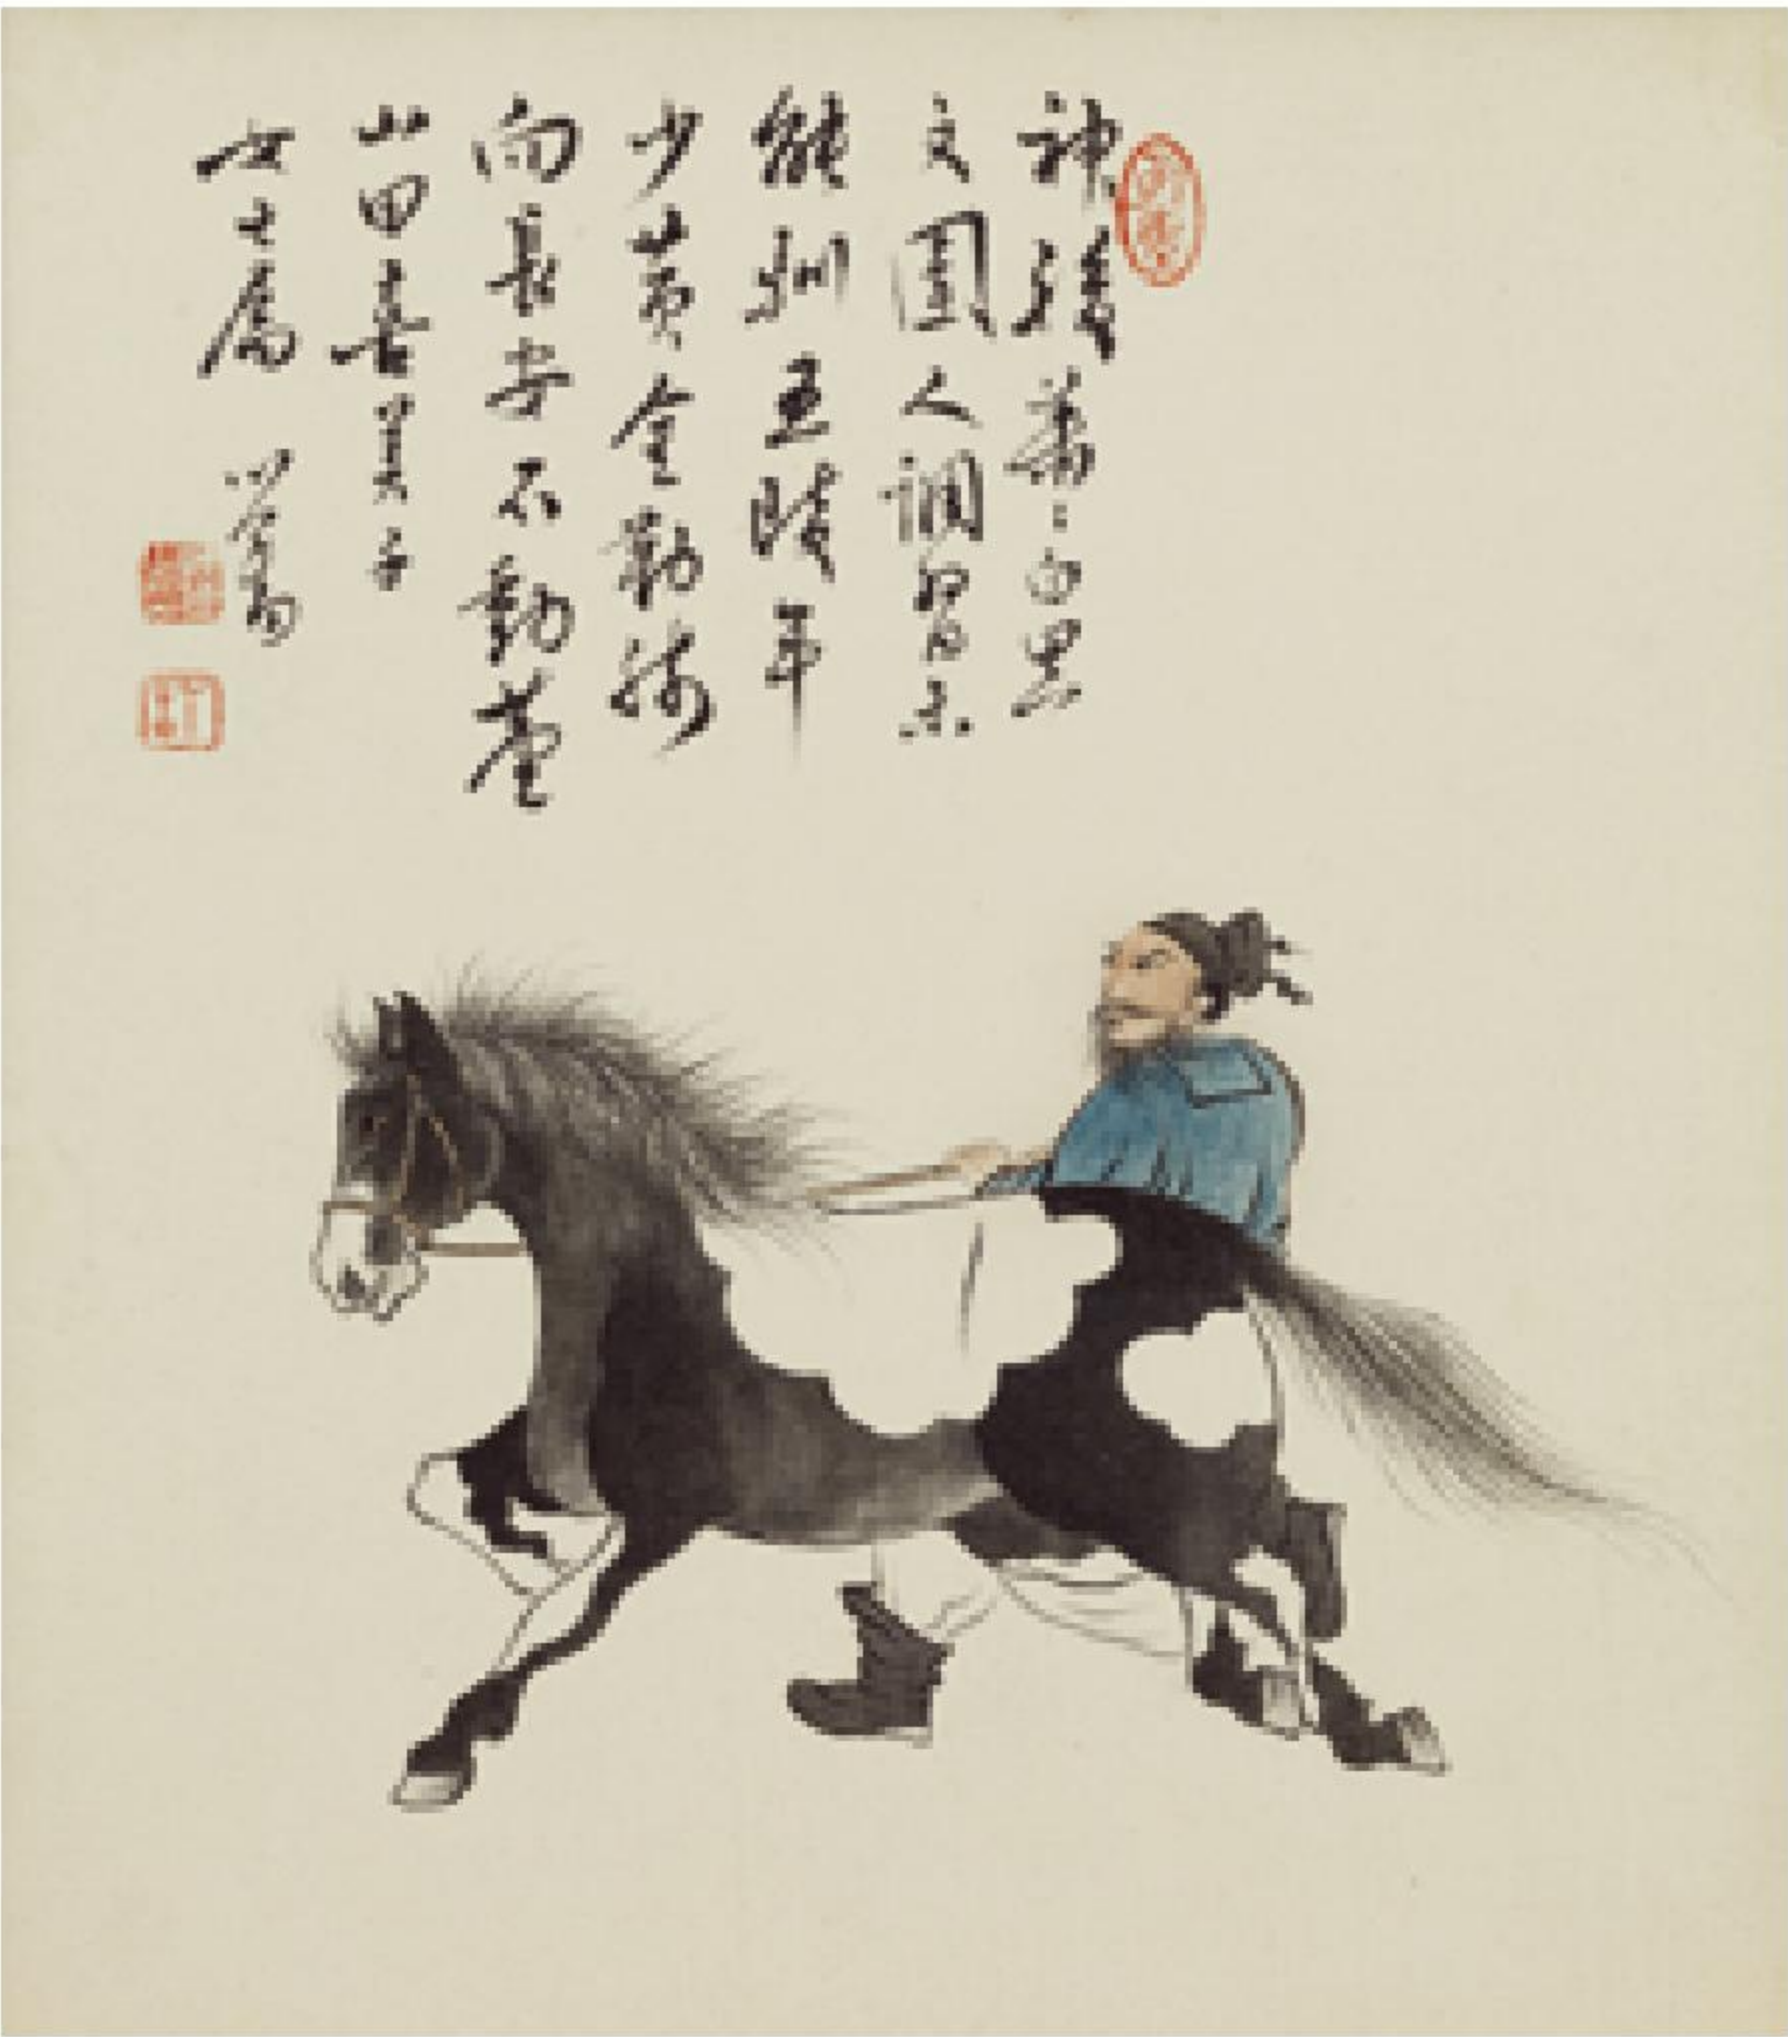 神駿蕭〻白黑
文圉人調習亦
能馴五陵年
少黃金勒騎
向長安不動塵
山田喜美子
女士屬 心畬